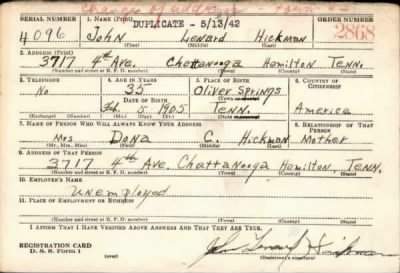 Change of address Form
SERIAL NUMBER 1. NAME (Print) DUPLICATE - 5/13/42 ORDER NUMBER
4096 John Lenard Hickman 2868
(First) (Middle) (Last)
2. ADDRESS (Print)
3717 4th Ave. Chattanooga Hamilton Tenn.
(Number and street or R. F. D. number) (Town) (County) (State)
3. TELEPHONE 4. AGE IN YEARS 5. PLACE OF BIRTH 6. COUNTRY OF CITIZENSHIP
No 35 Oliver Springs
(Town or county)
DATE OF BIRTH
Feb. 5 1905 Tenn. America
(Exchange) (Number) (Mo.) (Day) (Yr.) (State or country)
7. NAME OF PERSON WHO WILL ALWAYS KNOW YOUR ADDRESS 8. RELATIONSHIP OF THAT PERSON
Mrs Dona C. Hickman Mother
(Mr., Mrs., Miss) (First) (Middle) (Last)
9. ADDRESS OF THAT PERSON
3717 4th Ave. Chattanooga Hamilton, Tenn.
(Number and street or R. F. D. number) (Town) (County) (State)
10. EMPLOYER'S NAME
Unemployed
11. PLACE OF EMPLOYMENT OR BUSINESS
(Number and street or R. F. D. number) (Town) (County) (State)
I AFFIRM THAT I HAVE VERIFIED ABOVE ANSWERS AND THAT THEY ARE TRUE.
REGISTRATION CARD
D. S. S. Form 1 (over) John Lenard Hickman
(Registrant's signature)